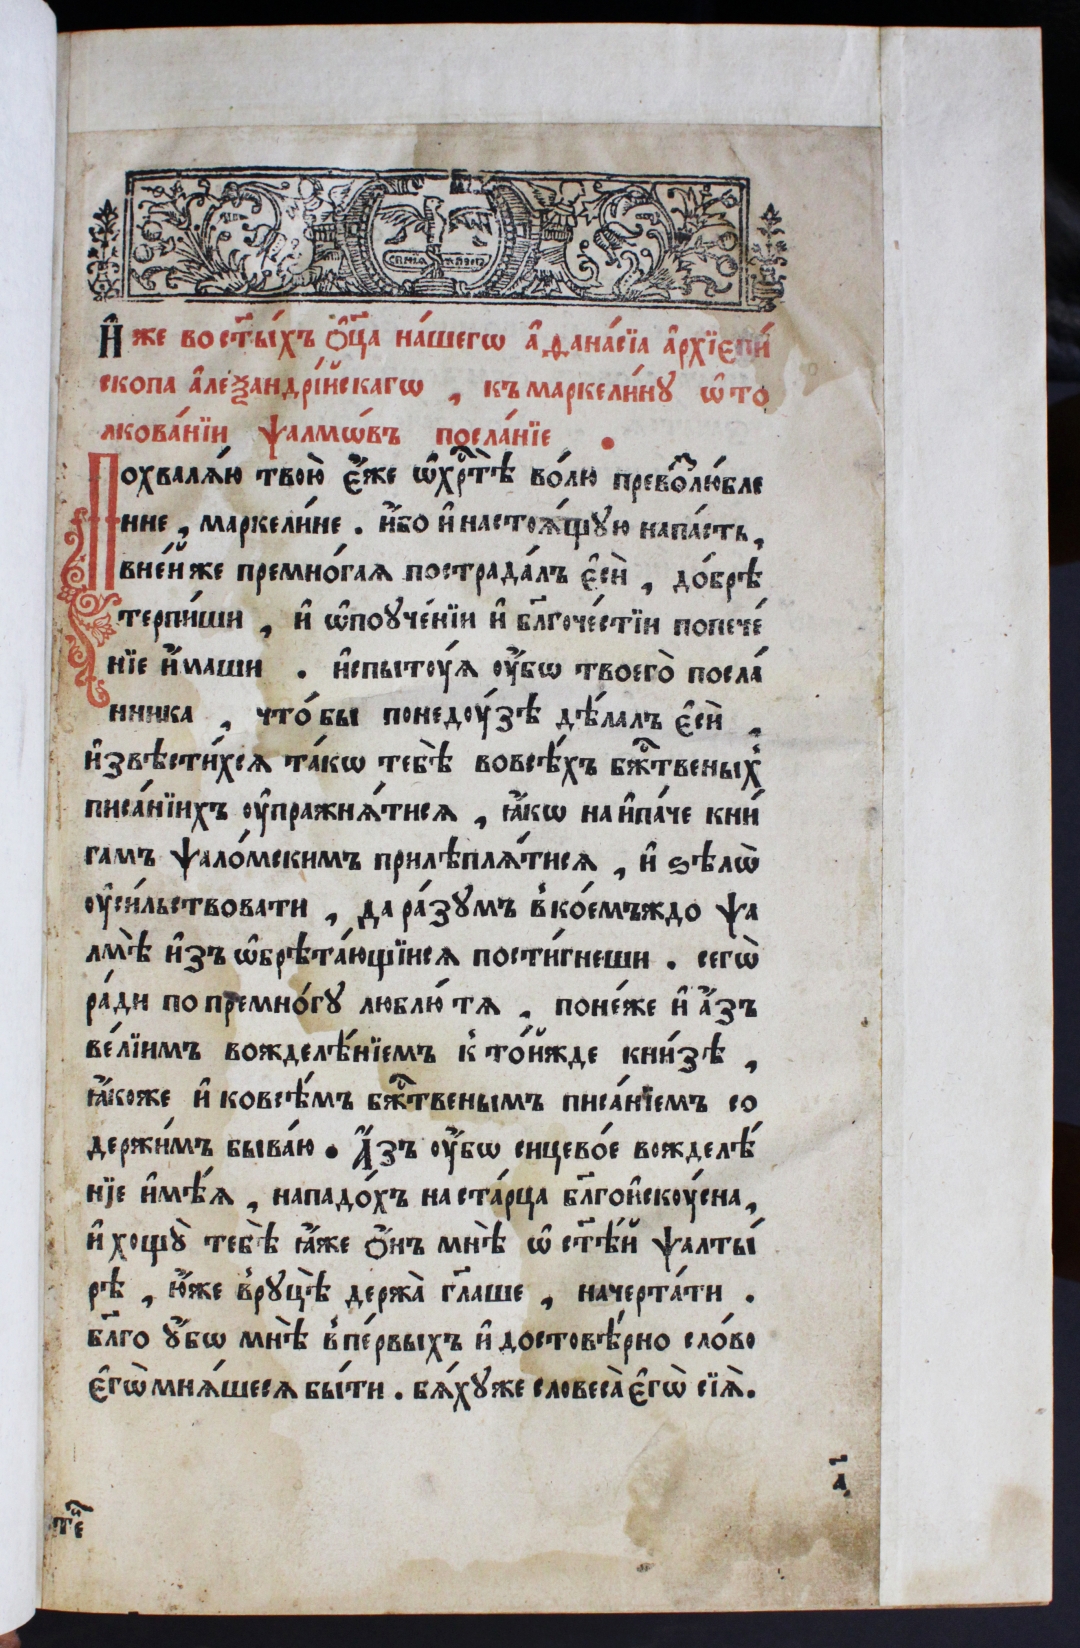 И҆́же во ст҃ы́хъ ѻ҆ц҃а на́шегѡ а҆ѳана́сїа а҆рхїєпи́
скопа а҆леѯандрі́йскагѡ , къ маркели́ну ѡ҆ то
лкова́нїи ѱалмѡ́въ посла́нїе .
Похваля́ю твою̀ є҆́же ѡ҆ хрⷭ҇тѣ̀ во́лю превоⷥлю́бле
нне , маркели́не . и҆́бо и҆ настоѧ́щꙋю напа́сть ,
вне́йже премно́гаѧ пострада́лъ є҆сѝ , до́брѣ
терпи́ши , и҆ ѡ҆ поуче́нїи и҆ бл҃гоче́стїи попече́
нїе и҆́маши . и҆спытоуѧ оу҆́бѡ твоего̀ посла́
нника , что́ бы по недоу́зѣ дѣ́лалъ є҆сѝ ,
и҆звѣсти́хсѧ та́кѡ тебѣ̀ во всѣ́хъ бж҃твеныхъ
писа́нїихъ оу҆пражнѧ́тисѧ , ꙗ҆́кѡ наи҆па́че кни́
гамъ ѱало́мскимъ прилѣплѧ́тисѧ , и҆ ѕѣлѡ̀
оу҆си́льствовати , да ра́зумъ в ко́емъждо ѱа
лмѣ̀ и҆зъ ѡ҆брѣта́ющїисѧ пости́гнеши . сегѡ̀
ра́ди по премно́гꙋ люблю́ тѧ , поне́же и҆ а҆́зъ
ве́лїимъ вожделе́нїемъ к то́йжде кни́зѣ ,
ꙗ҆́коже и҆ ко всѣ́мъ бж҃твенымъ писа́нїемъ со
держи́мъ быва́ю . А҆́зъ оу҆́бѡ сицево́е вожделѣ́
нїе и҆мѣ́ѧ , нападо́хъ на ста́рца бл҃гои҆скоу́сна ,
и҆ хощꙋ̀ тебѣ̀ ꙗ҆́же ѻ҆́нъ мнѣ̀ ѡ҆ ст҃ѣ́й ѱалты́
рѣ , ю҆́же в рꙋцѣ̀ держа̀ гл҃аше , начерта́ти .
бл҃го ꙋ҆́бѡ мнѣ̀ в пе́рвыхъ и҆ достовѣ́рно сло́во
є҆гѡ̀ мнѧ́шесѧ бы́ти . бѧ́хꙋ же словеса̀ є҆гѡ̀ сїѧ̀ .
а҃